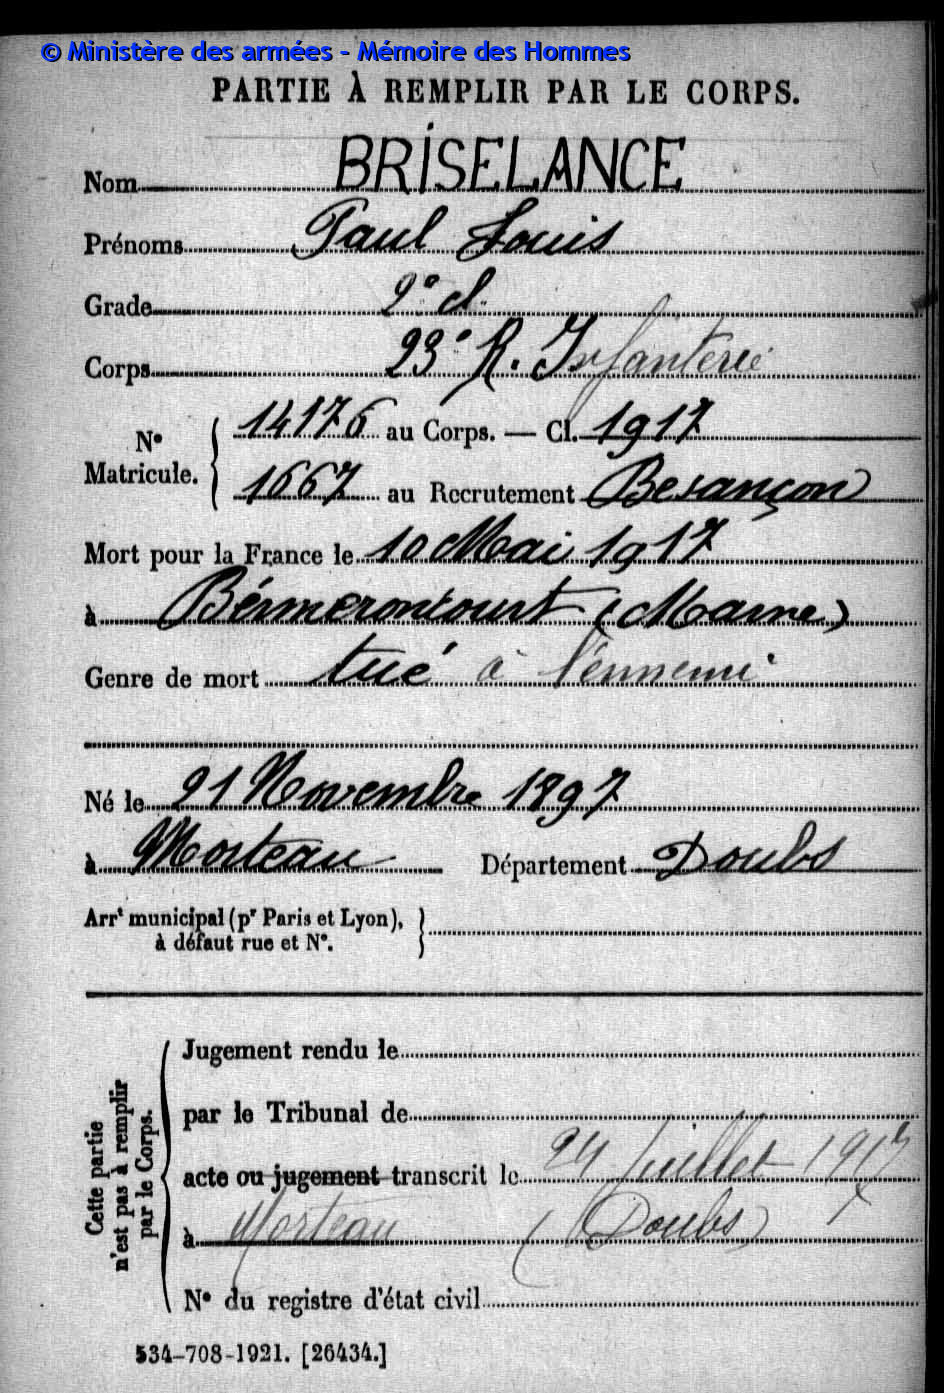 © Ministère des armées - Mémoire des Hommes
PARTIE À REMPLIR PAR LE CORPS.
Nom BRISELANCE
Prénoms Paul Louis
Grade 2e cl.
Corps 23e R. Infanterie
N° Matricule.
14176 au Corps. — Cl. 1917
1667 au Recrutement Besançon
Mort pour la France le 10 Mai 1917
à Bermeroncourt (Marne)
Genre de mort tué à l'ennemi
Né le 21 Novembre 1897
à Morteau Département Doubs
Arrt municipal (pr Paris et Lyon),
à défaut rue et N°.
Cette partie
n'est pas à remplir
par le Corps.
Jugement rendu le
par le Tribunal de
acte ou jugement transcrit le 24 Juillet 1917
à Morteau (Doubs)
N° du registre d'état civil
534-708-1921. [26434.]